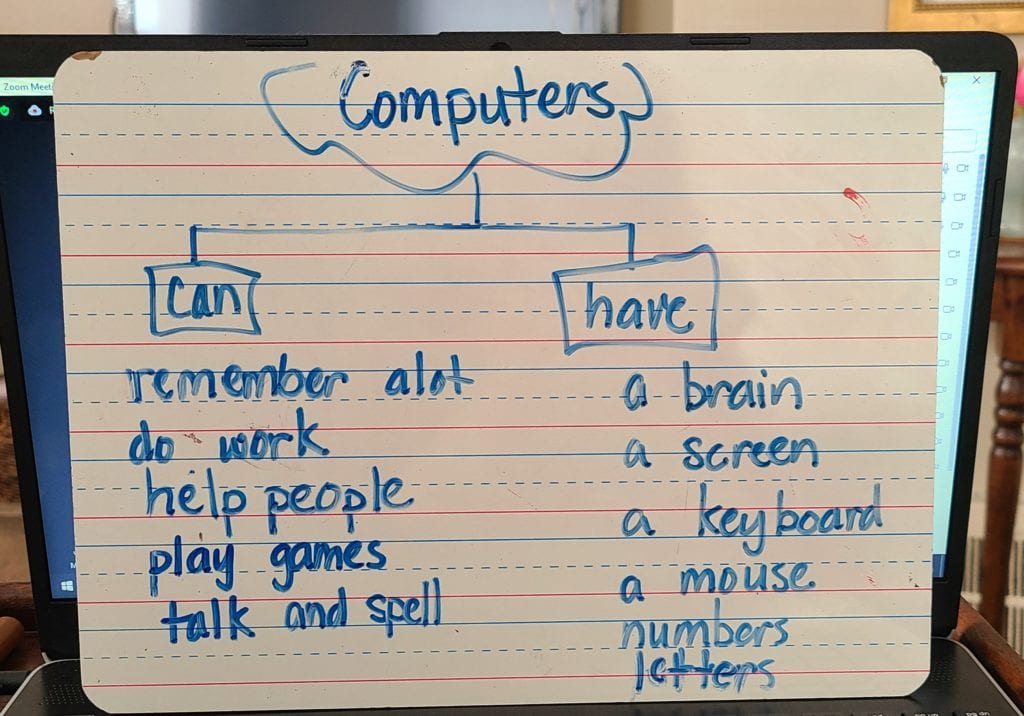 Zoom Meet
Computers
can
remember alot
do work
help people
play games
talk and spell
have
a brain
a screen
a keyboard
a mouse
numbers
letters